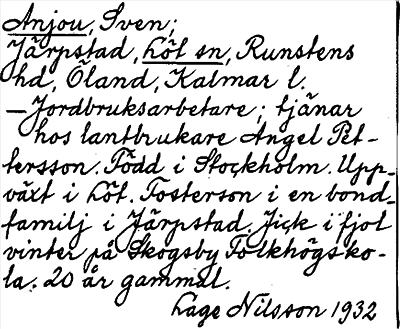 Anjou, Sven;
Järpstad, Löt sn, Runstens
hd, Öland, Kalmar l.
– Jordbruksarbetare; tjänar
hos lantbrukare Angel Pet-
tersson. Född i Stockholm. Upp-
växt i Löt. Fosterson i en bond-
familj i Järpstad. Gick i fjol
vinter på Skogsby Folkhögsko-
la. 20 år gammal.
Lage Nilsson 1932